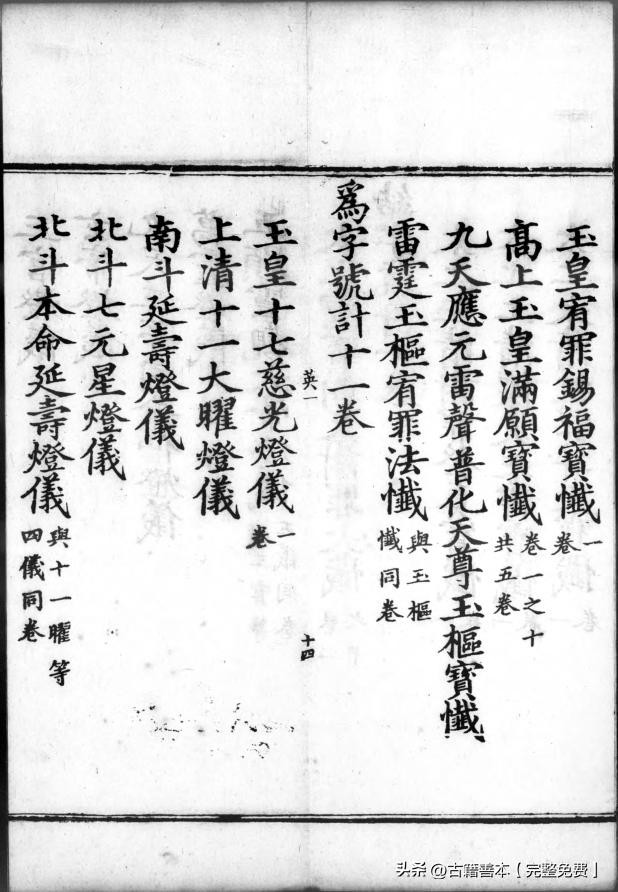 玉皇宥罪錫福寶懺一卷
高上玉皇滿願寶懺卷一之十共五卷
九天應元雷聲普化天尊玉樞寶懺
雷霆玉樞宥罪法懺與玉樞懺同卷
為字號計十一卷
英一
十四
玉皇十七慈光燈儀一卷
上清十一大曜燈儀
南斗延壽燈儀
北斗七元星燈儀
北斗本命延壽燈儀與十一曜等四儀同卷
头条@古籍善本【完整免费】